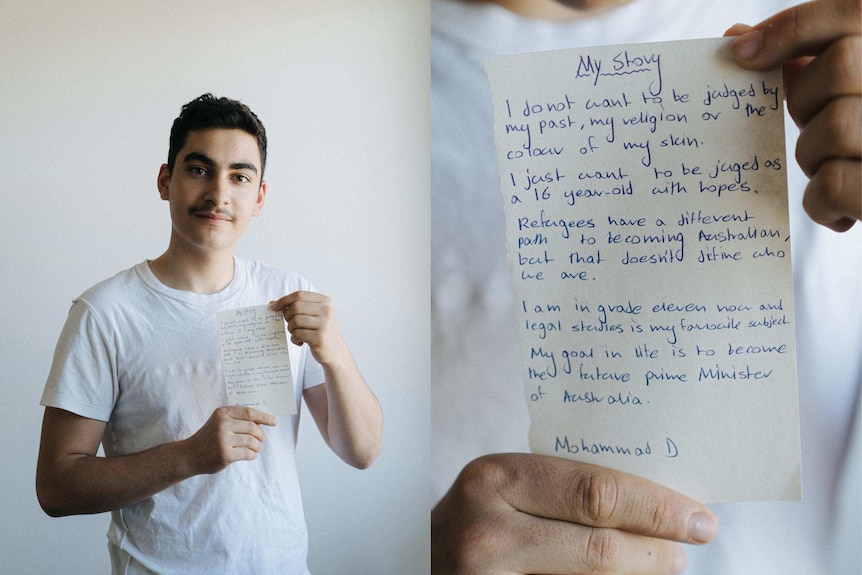 My Story
I do not want to be judged by
my past, my religion or the
colour of my skin.
I just want to be juged as
a 16 year-old with hopes.
Refugees have a different
path to becoming Australian,
but that doesn't difine who
we are.
I am in grade eleven now and
legal studies is my favourite subject.
My goal in life is to become
the future prime Minister
of Australia.
Mohammad D